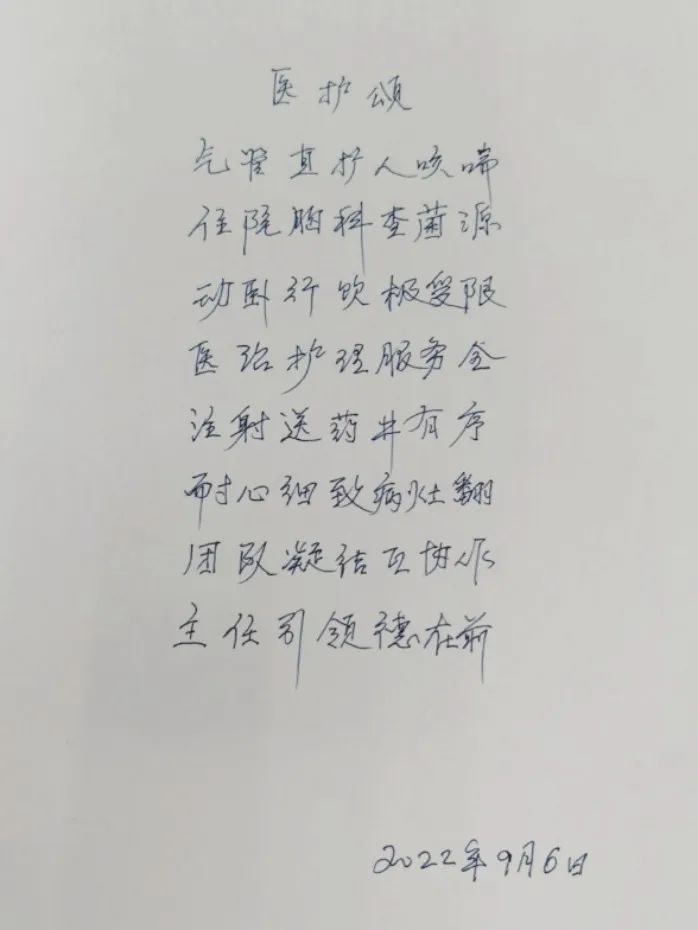 医护颂
气管直扩人咳喘
住院胸科查菌源
动卧行饮极受限
医治护理服务全
注射送药井有序
耐心细致病灶翻
团队凝结互协作
主任引领德在前
2022年9月6日